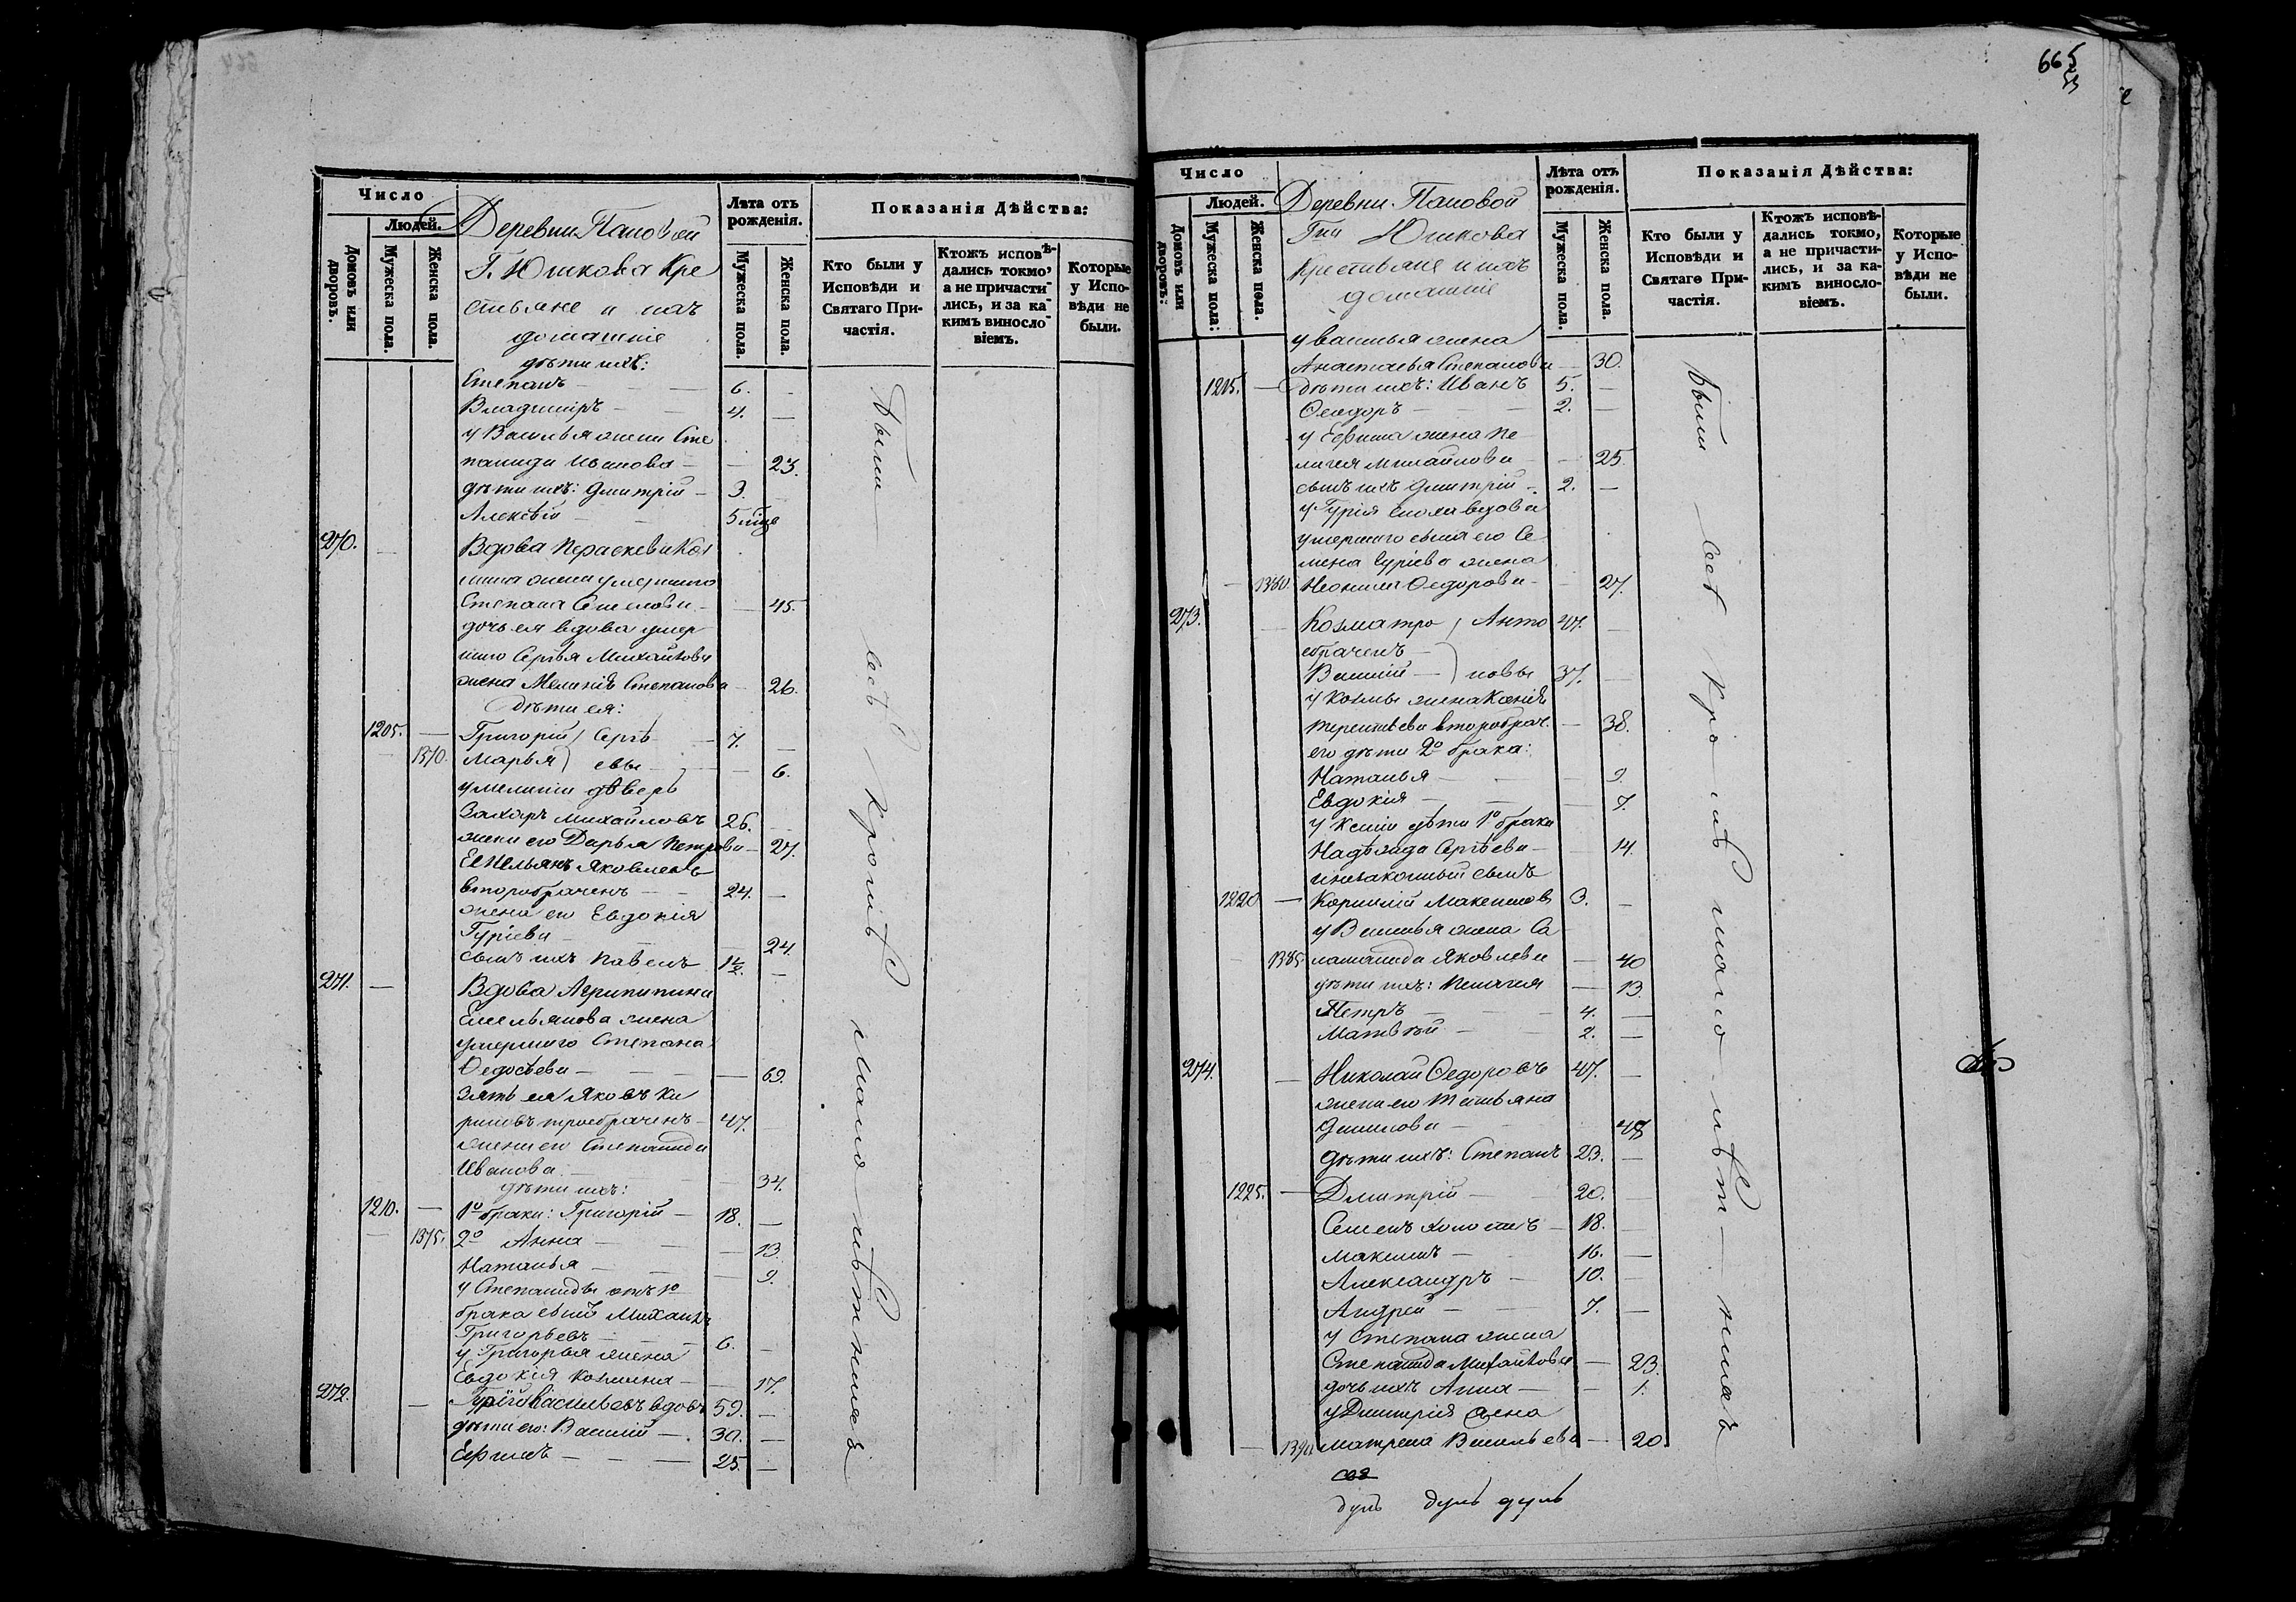 Число
Людей.
Домовъ или дворовъ.
Мужеска пола.
Женска пола.
Деревни Пановой
Г. Юшкова Кре
стьяне и ихъ
домашніе
Лѣта отъ рожденія.
Мужеска пола.
Женска пола.
Показанія Дѣйства:
Кто были у Исповѣди и Святаго Причастія.
Ктожъ исповѣдались токмо, а не причастились, и за какимъ винословіемъ.
Которые у Исповѣди не были.
дѣти ихъ:
Степанъ — 6. —
Владиміръ — 4. —
у Василья жена Сте
панида Иванова — — 23.
дѣти ихъ: Дмитрій — 3. —
Алексѣй — 5 мѣце
270. — Вдова Параскева Коз
мина жена умершаго
Степана — 45.
дочь ея вдова умер
шаго Сергѣя Михайлова
жена Меланія Степанова — 26.
Дѣти ея:
1205. — Григорій ) Сергѣ — 7. —
1370. Марья ) евы — — 6.
у Меланіи дѣверь
Захаръ Михайловъ 26. —
жена его Дарья Петрова — 27.
Емельянъ Яковлевъ
второбраченъ — 24. —
жена его Евдокія
Гуріева — — 24.
сынъ ихъ Павелъ 1½ —
271. — Вдова Агрипина
Емельянова жена
умершаго Степана
Ѳедосѣева — — 69.
зять ея Яковъ Ки
риловъ троебраченъ — 47.
жена его Степанида
Иванова — — 34.
дѣти ихъ:
1210. — 1º брака: Григорій — 18. —
— 1375. 2º Анна — — 13.
Наталья — — 9.
у Степаниды отъ 1º
брака сынъ Михаилъ
Григорьевъ — 6. —
у Григорья жена
Евдокія Козмина — — 17.
272. — Гурій Васильевъ вдовъ 59. —
дѣти его: Василій — 30. —
Ефимъ — — — 25. —
были — всѣ кромѣ малолѣтнихъ
665
Число
Людей.
Домовъ или дворовъ:
Мужеска пола:
Женска пола.
Деревни Пановой
Гна Юшкова
Крестьяне и ихъ
домашніе
Лѣта отъ рожденія.
Мужеска пола.
Женска пола.
Показанія Дѣйства:
Кто были у Исповѣди и Святаго Причастія.
Ктожъ исповѣдались токмо, а не причастились, и за какимъ винословіемъ.
Которые у Исповѣди не были.
у Василья жена
Анастасья Степанова — 30.
1215. — дѣти ихъ: Иванъ 5. —
Ѳеодоръ — — 2. —
у Ефима жена Пе
лагея Михайлова — — 25.
сынъ ихъ Дмитрій — 2. —
у Гурія сноха вдова
умершаго сына его Се
мена Гуріева жена
— 1380. Неонила Ѳедорова — — 27.
273. — Козма тро ) Анто 47. —
ебраченъ —
Василій — ) новы 37. —
у Козмы жена Ксенія
Терентьева второбрач. — 38.
его дѣти 2º брака:
Наталья — — 9.
Евдокія — — 7.
у Ксеніи дѣти 1º брака
Надежда Сергѣева — — 14.
и незаконный сынъ
1220 — Корнилій Максимовъ 3. —
у Василья жена Са
— 1385. ломанида Яковлева — 40
дѣти ихъ: Пелагея — 13.
Петръ — — 4. —
Матвѣй — — 2. —
274. — Николай Ѳедоровъ 47. —
жена его Татьяна
Данилова — — 48
дѣти ихъ: Степанъ 23. —
1225. — Дмитрій — 20. —
Семенъ холостъ — 18. —
Максимъ — 16. —
Александръ — 10. —
Андрей — — 7. —
у Степана жена
Степанида Михайлова — 23.
дочь ихъ Анна — — 1.
у Дмитрія жена
— 1390. Матрена Васильева — 20.
были — всѣ кромѣ малолѣт — нихъ
душъ душъ душъ